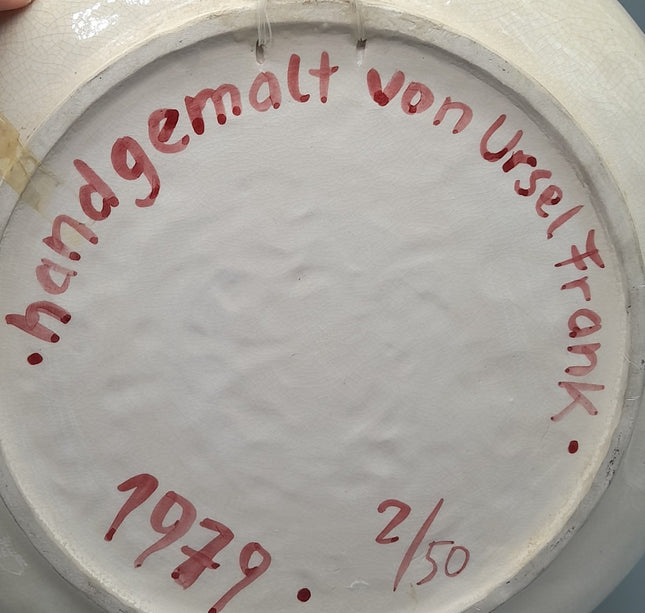 • handgemalt von Ursel Frank •
1979 •
2/50